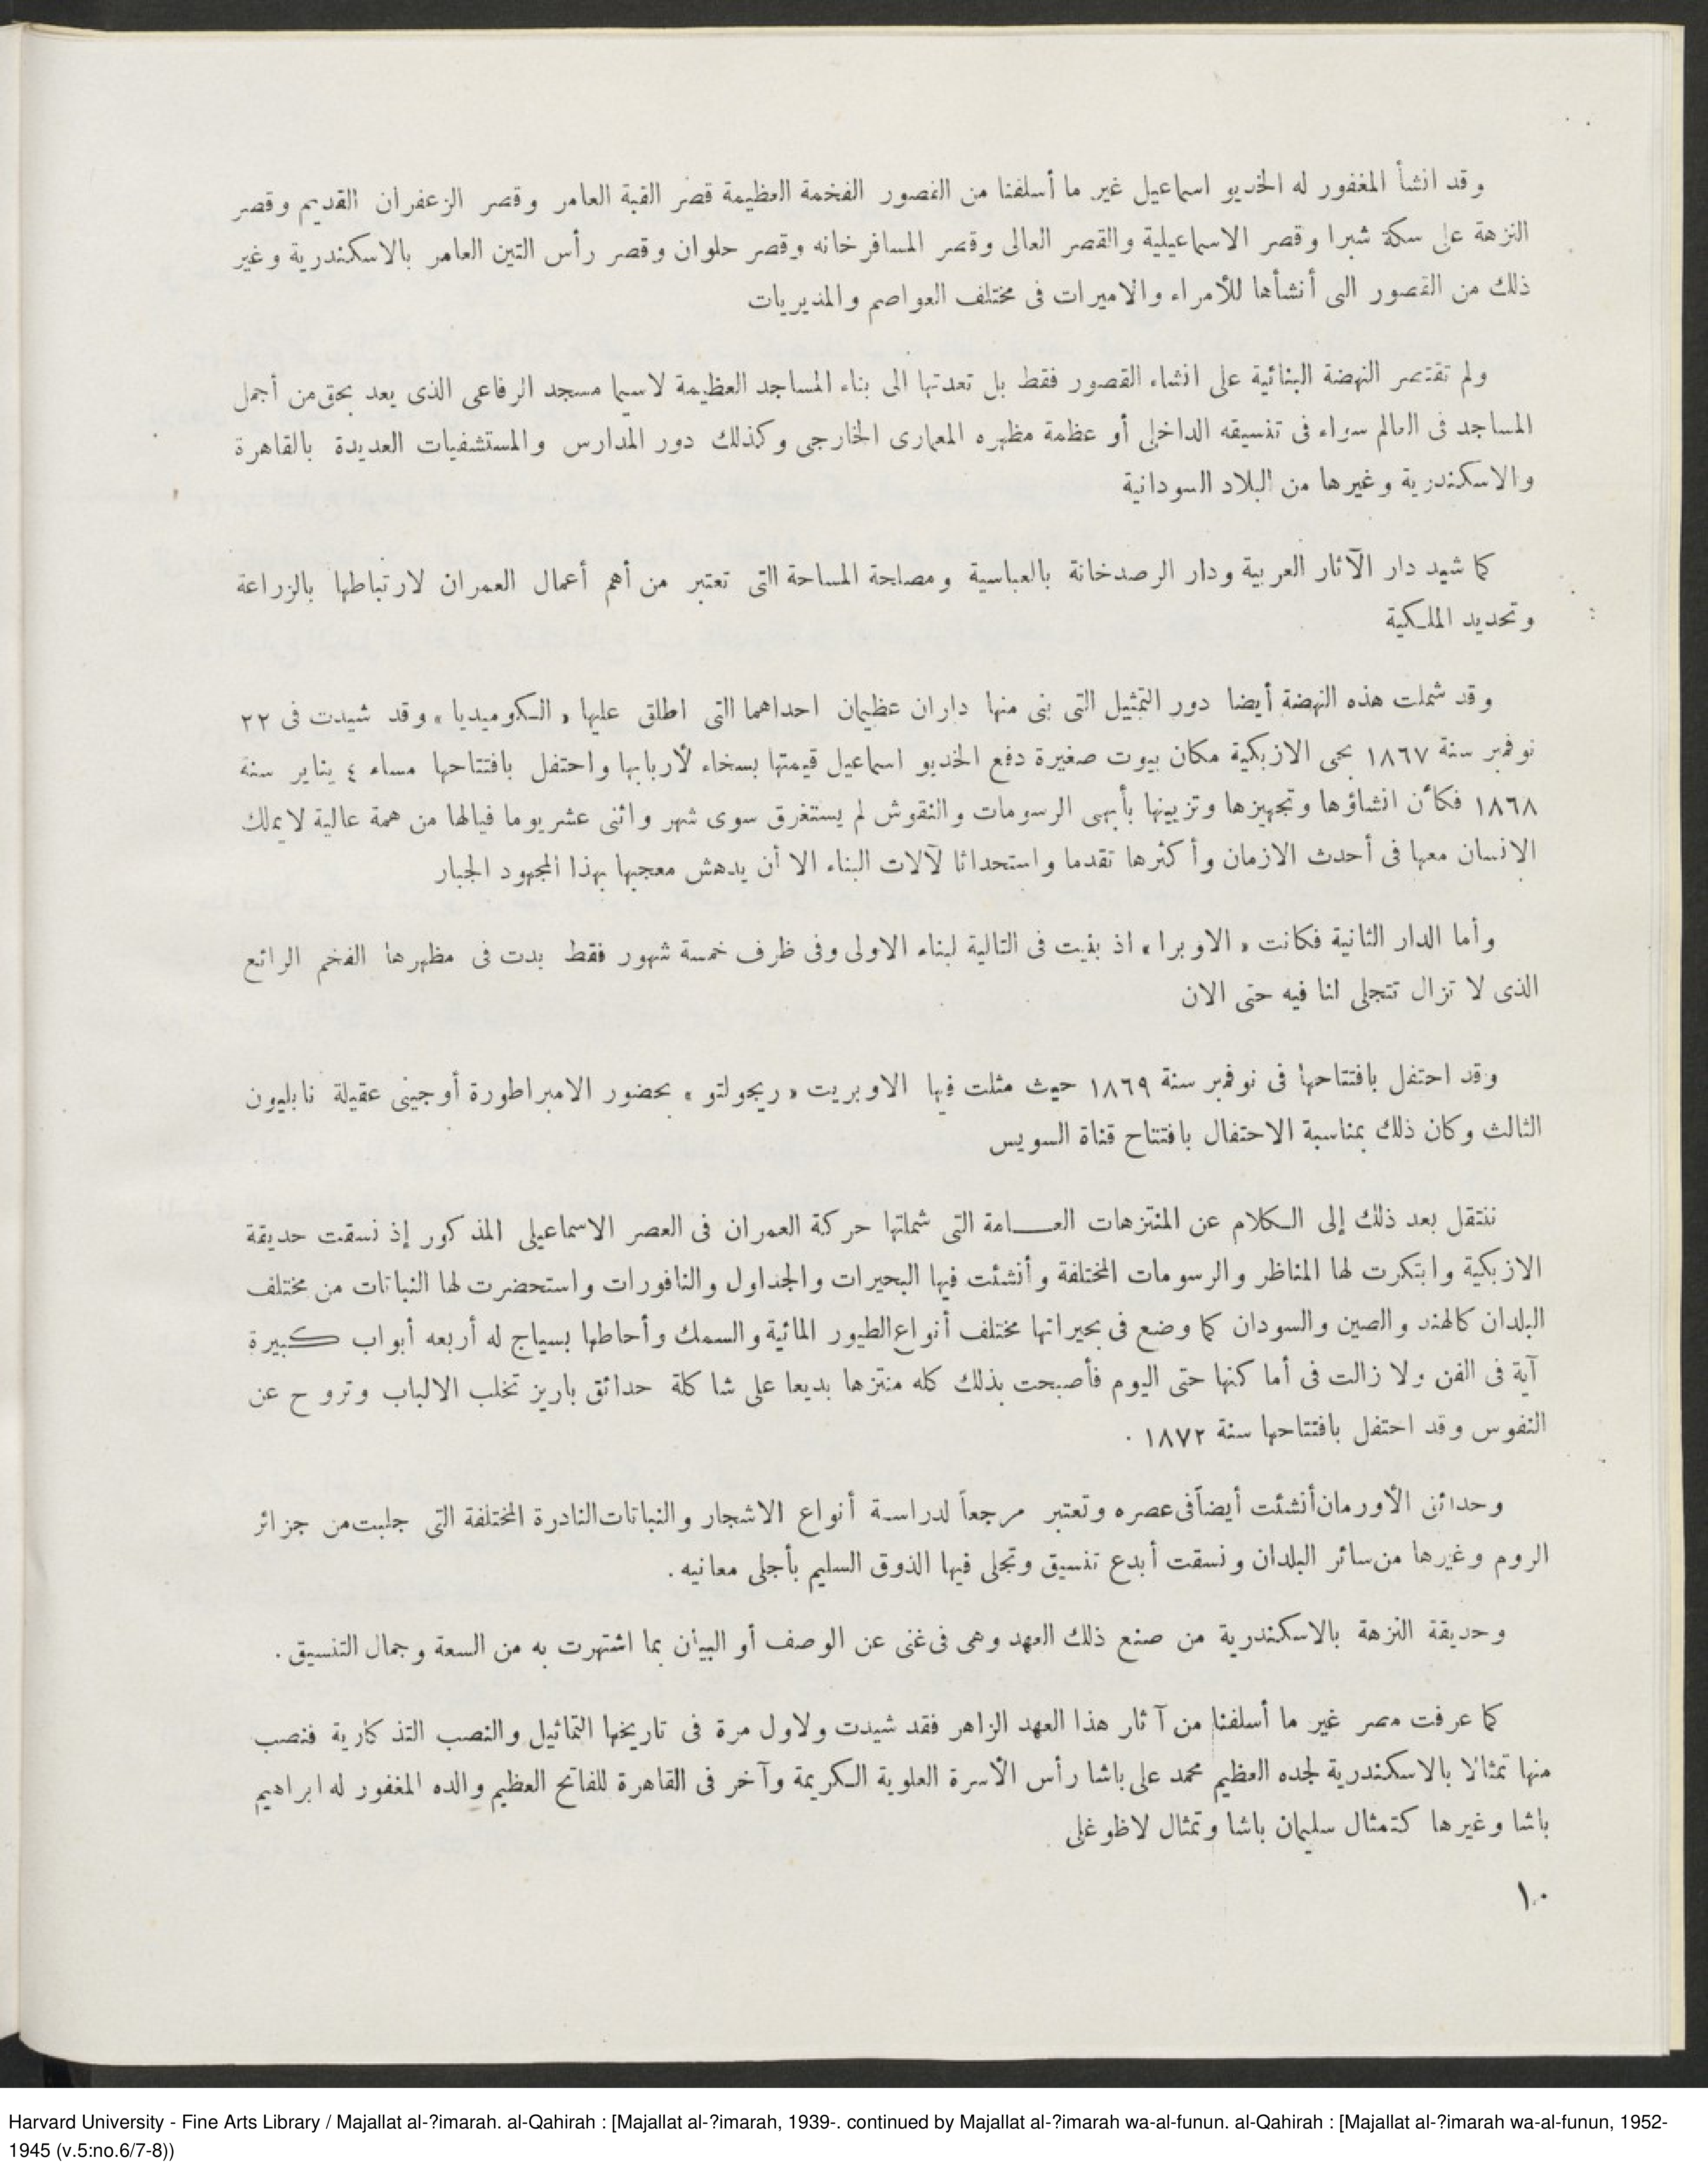 وقد انشأ المغفور له الخديو اسماعيل غير ما أسلفنا من القصور الفخمة العظيمة قصر القبة العامر وقصر الزعفران القديم وقصر
النزهة على سكة شبرا وقصر الاسماعيلية والقصر العالى وقصر المسافرخانه وقصر حلوان وقصر رأس التين العامر بالاسكندرية وغير
ذلك من القصور التى أنشأها للأمراء والاميرات فى مختلف العواصم والمديريات
ولم تقتصر النهضة البنائية على انشاء القصور فقط بل تعدتها الى بناء المساجد العظيمة لاسيما مسجد الرفاعى الذى يعد بحق من أجمل
المساجد فى العالم سواء فى تنسيقه الداخلى أو عظمة مظهره المعمارى الخارجى وكذلك دور المدارس والمستشفيات العديدة بالقاهرة
والاسكندرية وغيرها من البلاد السودانية
كما شيد دار الآثار العربية ودار الرصدخانة بالعباسية ومصلحة المساحة التى تعتبر من أهم أعمال العمران لارتباطها بالزراعة
وتحديد الملكية
وقد شملت هذه النهضة أيضا دور التمثيل التى بنى منها داران عظيمان احداهما التى اطلق عليها «الكوميديا» وقد شيدت فى ٢٢
نوفمبر سنة ١٨٦٧ بحى الازبكية مكان بيوت صغيرة دفع الخديو اسماعيل قيمتها بسخاء لأربابها واحتفل بافتتاحها مساء ٤ يناير سنة
١٨٦٨ فكأن انشاؤها وتجهيزها وتزيينها بأبهى الرسومات والنقوش لم يستغرق سوى شهر واثنى عشر يوما فيالها من همة عالية لا يملك
الإنسان معها فى أحدث الازمان وأكثرها تقدما واستحداثا لآلات البناء الا أن يدهش معجبها بهذا المجهود الجبار
وأما الدار الثانية فكانت «الاوبرا» اذ بنيت فى التالية لبناء الاولى وفى ظرف خمسة شهور فقط بدت فى مظهرها الفخم الرائع
الذى لا تزال تتجلى لنا فيه حتى الان
وقد احتفل بافتتاحها فى نوفمبر سنة ١٨٦٩ حيث مثلت فيها الاوبريت «ريجولتو» بحضور الامبراطورة أوجينى عقيلة نابليون
الثالث وكان ذلك بمناسبة الاحتفال بافتتاح قناة السويس
ننتقل بعد ذلك إلى الكلام عن المنتزهات العـــامة التى شملتها حركة العمران فى العصر الاسماعيلى المذكور إذ نسقت حديقة
الازبكية وابتكرت لها المناظر والرسومات المختلفة وأنشئت فيها البحيرات والجداول والنافورات واستحضرت لها النباتات من مختلف
البلدان كالهند والصين والسودان كما وضع فى بحيراتها مختلف أنواع الطيور المائية والسمك وأحاطها بسياج له أربعه أبواب كبيرة
آية فى الفن ولا زالت فى أماكنها حتى اليوم فأصبحت بذلك كله منتزها بديعا على شاكلة حدائق باريز تخلب الالباب وتروح عن
النفوس وقد احتفل بافتتاحها سنة ١٨٧٢ .
وحدائق الأورمان أنشئت أيضاً فى عصره وتعتبر مرجعاً لدراسة أنواع الاشجار والنباتات النادرة المختلفة التى جلبت من جزائر
الروم وغيرها من سائر البلدان ونسقت أبدع تنسيق وتجلى فيها الذوق السليم بأجلى معانيه .
وحديقة النزهة بالاسكندرية من صنع ذلك العهد وهى فى غنى عن الوصف أو البيان بما اشتهرت به من السعة وجمال التنسيق .
كما عرفت مصر غير ما أسلفنا من آثار هذا العهد الزاهر فقد شيدت ولاول مرة فى تاريخها التماثيل والنصب التذكارية فنصب
منها تمثالا بالاسكندرية لجده العظيم محمد على باشا رأس الأسرة العلوية الكريمة وآخر فى القاهرة للفاتح العظيم والده المغفور له ابراهيم
باشا وغيرها كتمثال سليمان باشا وتمثال لاظوغلى
١٠
Harvard University - Fine Arts Library / Majallat al-?imarah. al-Qahirah : [Majallat al-?imarah, 1939-. continued by Majallat al-?imarah wa-al-funun. al-Qahirah : [Majallat al-?imarah wa-al-funun, 1952-
1945 (v.5:no.6/7-8))